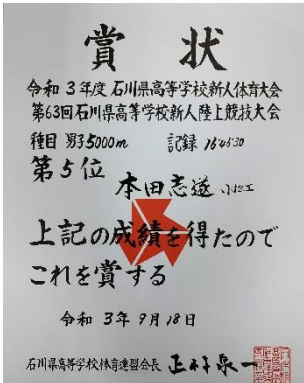 賞状
令和3年度 石川県高等学校新人体育大会
第63回石川県高等学校新人陸上競技大会
種目 男子5000m 記録 16'46"30
第5位
本田志遂 小松工
上記の成績を得たので
これを賞する
令和 3年 9月 18日
石川県高等学校体育連盟会長